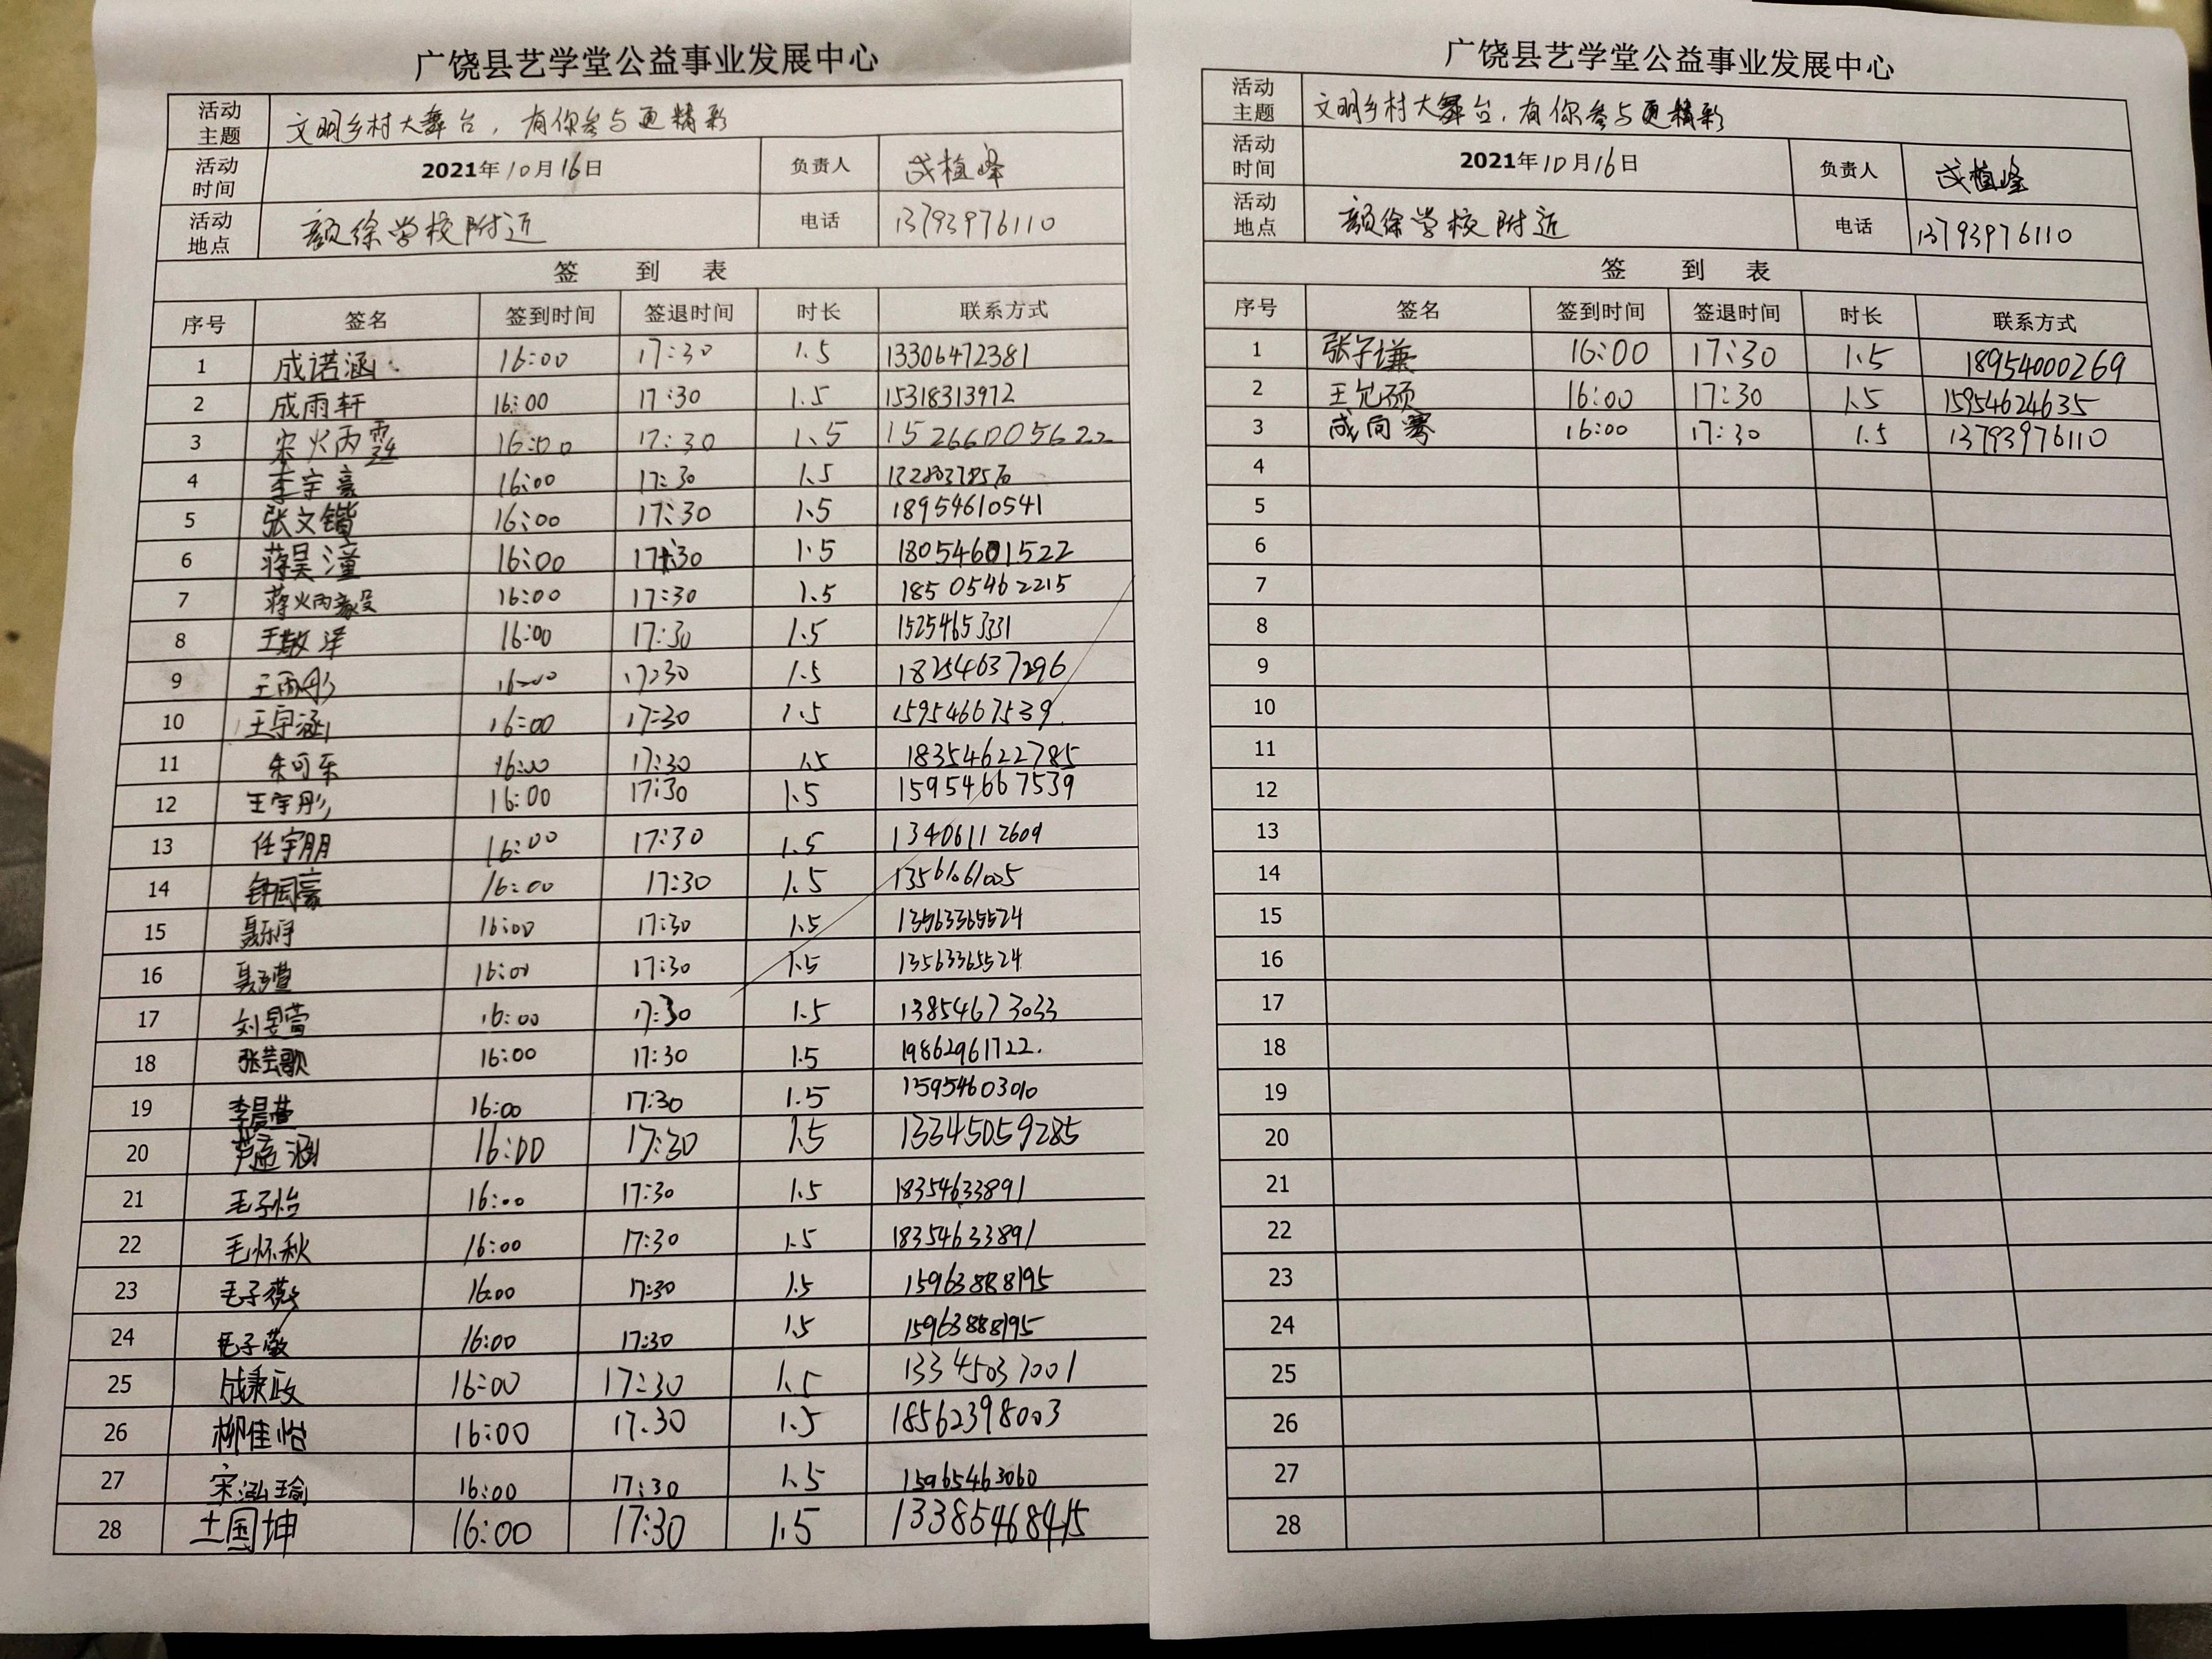 广饶县艺学堂公益事业发展中心
活动主题 文明乡村大舞台，有你参与更精彩
活动时间 2021年10月16日 负责人 成植峰
活动地点 颜徐学校附近 电话 13793976110
签 到 表
序号 签名 签到时间 签退时间 时长 联系方式
1 成诺涵 16:00 17:30 1.5 13306472381
2 成雨轩 16:00 17:30 1.5 15318313972
3 宋炳霖 16:00 17:30 1.5 15266005622
4 李宇豪 16:00 17:30 1.5
5 张文锴 16:00 17:30 1.5 18954610541
6 蒋昊潼 16:00 17:30 1.5 18054601522
7 蒋炳毅 16:00 17:30 1.5 18505462215
8 王敬泽 16:00 17:30 1.5 15254653331
9 王雨彤 16:00 17:30 1.5 18254637296
10 王宇涵 16:00 17:30 1.5 15954667539
11 朱可乐 16:00 17:30 1.5 18354622785
12 王宇彤 16:00 17:30 1.5 15954667539
13 任宇朋 16:00 17:30 1.5 13406112609
14 16:00 17:30 1.5 13561061005
15 聂乐宇 16:00 17:30 1.5 13563365524
16 16:00 17:30 1.5 13563365524
17 刘昱萱 16:00 17:30 1.5 13854673033
18 张芸歌 16:00 17:30 1.5 19862961722.
19 李晨萱 16:00 17:30 1.5 15954603010
20 芦孟涵 16:00 17:30 1.5 13345059285
21 毛子怡 16:00 17:30 1.5 18354633891
22 毛怀秋 16:00 17:30 1.5 18354633891
23 毛子薇 16:00 17:30 1.5 15963888195
24 毛子敬 16:00 17:30 1.5 15963888195
25 成秉政 16:00 17:30 1.5 13345037001
26 柳佳怡 16:00 17.30 1.5 18562398003
27 宋泓瑜 16:00 17:30 1.5 15965463060
28 王国坤 16:00 17:30 1.5 13385468415
广饶县艺学堂公益事业发展中心
活动主题 文明乡村大舞台，有你参与更精彩
活动时间 2021年10月16日 负责人 成植峰
活动地点 颜徐学校附近 电话 13793976110
签 到 表
序号 签名 签到时间 签退时间 时长 联系方式
1 张子谦 16:00 17:30 1.5 18954000269
2 16:00 17:30 1.5 15954624635
3 成向骞 16:00 17:30 1.5 13793976110
4
5
6
7
8
9
10
11
12
13
14
15
16
17
18
19
20
21
22
23
24
25
26
27
28